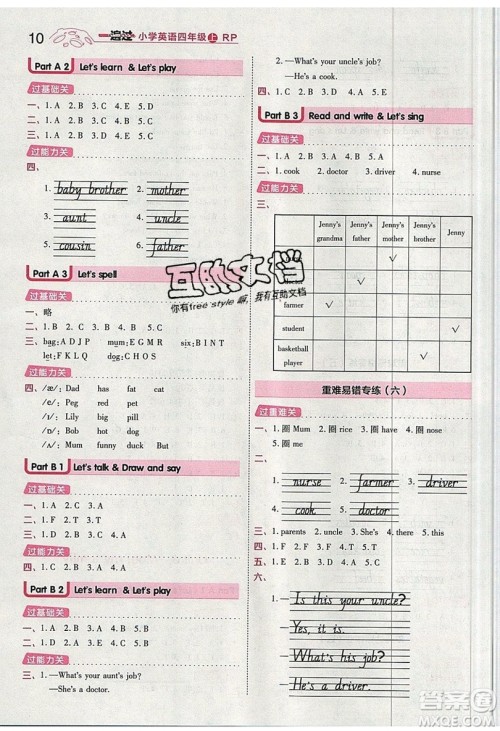 10 一遍过 小学英语四年级上 RP
Part A 2 Let's learn & Let's play
过基础关
一、1. A 2. B 3. C 4. E 5. D
二、1. A 2. B 3. B 4. A 5. B
三、1. C 2. B 3. D 4. A
过能力关
四、
1. baby brother 2. mother
3. aunt 4. uncle
5. cousin 6. father
Part A 3 Let's spell
过基础关
一、略
二、1. B 2. D 3. C 4. A
三、bag: A D J P mum: E G M R six: B I N Q
let: F K L Q dog: C H O S
过能力关
四、/æ/: Dad has fat cat
/e/: Peg red pet bed
/ɪ/: Lily big pig hill
/ɒ/: Tom long dog box
/ʌ/: Mum funny duck but
Part B 1 Let's talk & Draw and say
过基础关
一、1. A 2. C 3. A
二、1. B 2. A 3. A
过能力关
三、1. B 2. D 3. C 4. A
Part B 2 Let's learn & Let's play
过基础关
一、1. B 2. D 3. A 4. E 5. C
二、1. A 2. B 3. A 4. B 5. B
过能力关
三、1. —What's your aunt's job?
—She's a doctor.
2. —What's your uncle's job?
—He's a cook.
四、1. C 2. B 3. A 4. E 5. D
Part B 3 Read and write & Let's sing
过基础关
一、1. cook 2. doctor 3. driver 4. nurse
二、1. A 2. B 3. B 4. A 5. B
过能力关
三、
Jenny's grandma Jenny's father Jenny's mother Jenny's brother Jenny
√
doctor √
farmer √
student √
basketball player √
重难易错专练（六）
过重难关
一、1. 圈 Mum 2. 圈 nurse 3. 圈 river 4. 圈 from
5. 圈 nose
二、1. nurse 2. farmer 3. driver
4. cook 5. doctor
三、1. parents 2. uncle 3. She's 4. there 5. this
四、1. B 2. B 3. C 4. A 5. C
五、1. E 2. A 3. D 4. B 5. C
六、
1. —Is this your uncle?
—Yes, it is.
—What's his job?
—He's a driver.
互助文档
你有free style 嘛，我有互助文档
答案圈
MXQE.COM